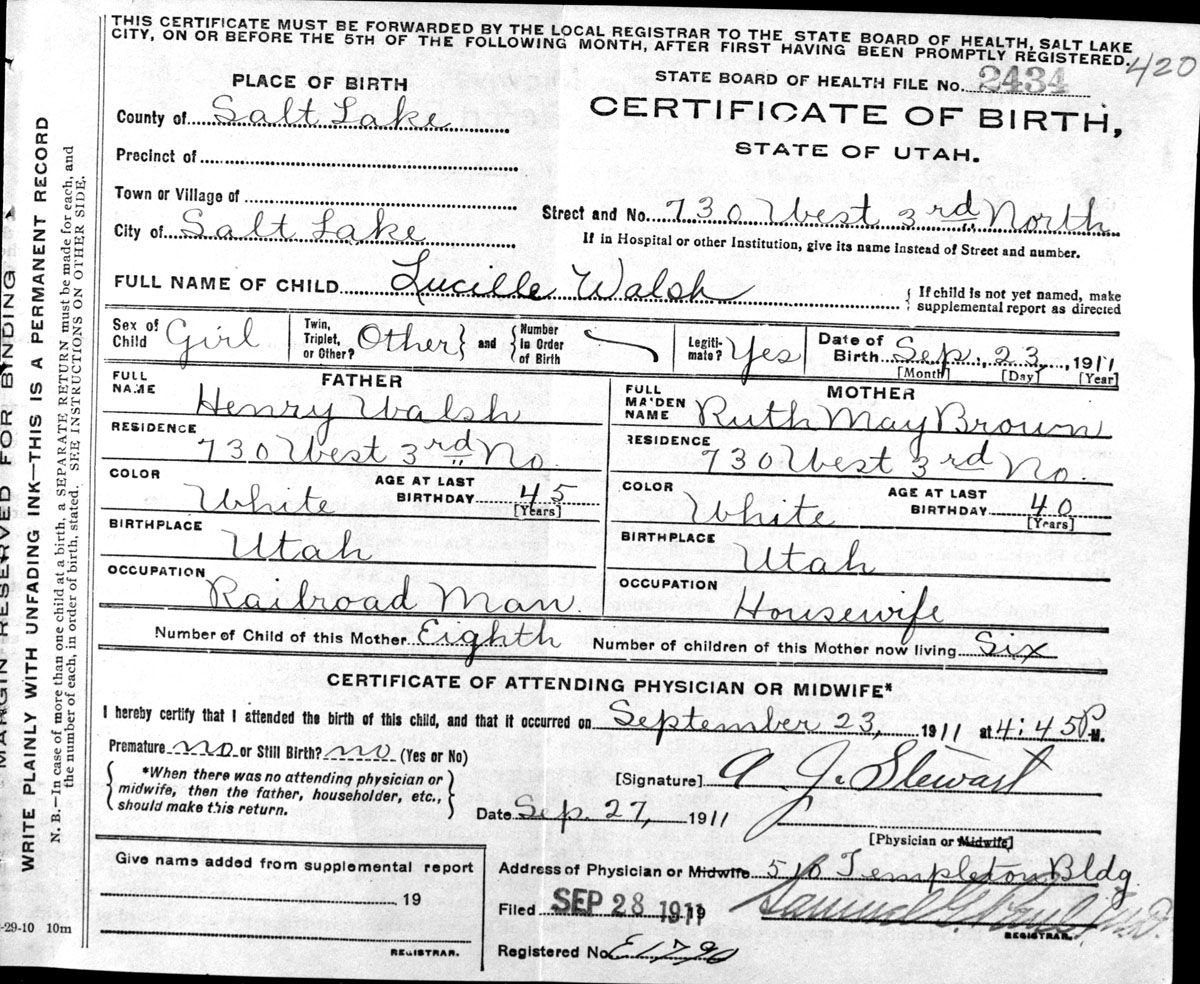 THIS CERTIFICATE MUST BE FORWARDED BY THE LOCAL REGISTRAR TO THE STATE BOARD OF HEALTH, SALT LAKE
CITY, ON OR BEFORE THE 5TH OF THE FOLLOWING MONTH, AFTER FIRST HAVING BEEN PROMPTLY REGISTERED.
420
PLACE OF BIRTH
STATE BOARD OF HEALTH FILE No. 2434
County of Salt Lake
CERTIFICATE OF BIRTH,
STATE OF UTAH.
Precinct of
Town or Village of
Street and No. 730 West 3rd North
City of Salt Lake
If in Hospital or other Institution, give its name instead of Street and number.
FULL NAME OF CHILD Lucille Walsh
{ If child is not yet named, make
supplemental report as directed
Sex of Child Girl
Twin, Triplet, or Other? Other } and { Number in Order of Birth
Legitimate? Yes
Date of Birth Sep. 23, 1911
[Month] [Day] [Year]
FATHER
FULL NAME Henry Walsh
RESIDENCE 730 West 3rd No.
COLOR White AGE AT LAST BIRTHDAY 45 [Years]
BIRTHPLACE Utah
OCCUPATION Railroad Man
MOTHER
FULL MAIDEN NAME Ruth May Brown
RESIDENCE 730 West 3rd No.
COLOR White AGE AT LAST BIRTHDAY 40 [Years]
BIRTHPLACE Utah
OCCUPATION Housewife
Number of Child of this Mother Eighth Number of children of this Mother now living Six
CERTIFICATE OF ATTENDING PHYSICIAN OR MIDWIFE*
I hereby certify that I attended the birth of this child, and that it occurred on September 23, 1911 at 4:45 P M.
Premature no or Still Birth? no (Yes or No)
*When there was no attending physician or
midwife, then the father, householder, etc.,
should make this return.
[Signature] J. Stewart
Date Sep. 27, 1911
[Physician or Midwife]
Give name added from supplemental report
19
REGISTRAR.
Address of Physician or Midwife 516 Templeton Bldg
Filed SEP 28 1911
REGISTRAR.
Registered No. E1790
MARGIN RESERVED FOR BINDING
WRITE PLAINLY WITH UNFADING INK—THIS IS A PERMANENT RECORD
N. B.—In case of more than one child at a birth, a SEPARATE RETURN must be made for each, and
the number of each, in order of birth, stated. SEE INSTRUCTIONS ON OTHER SIDE.
-29-10 10m